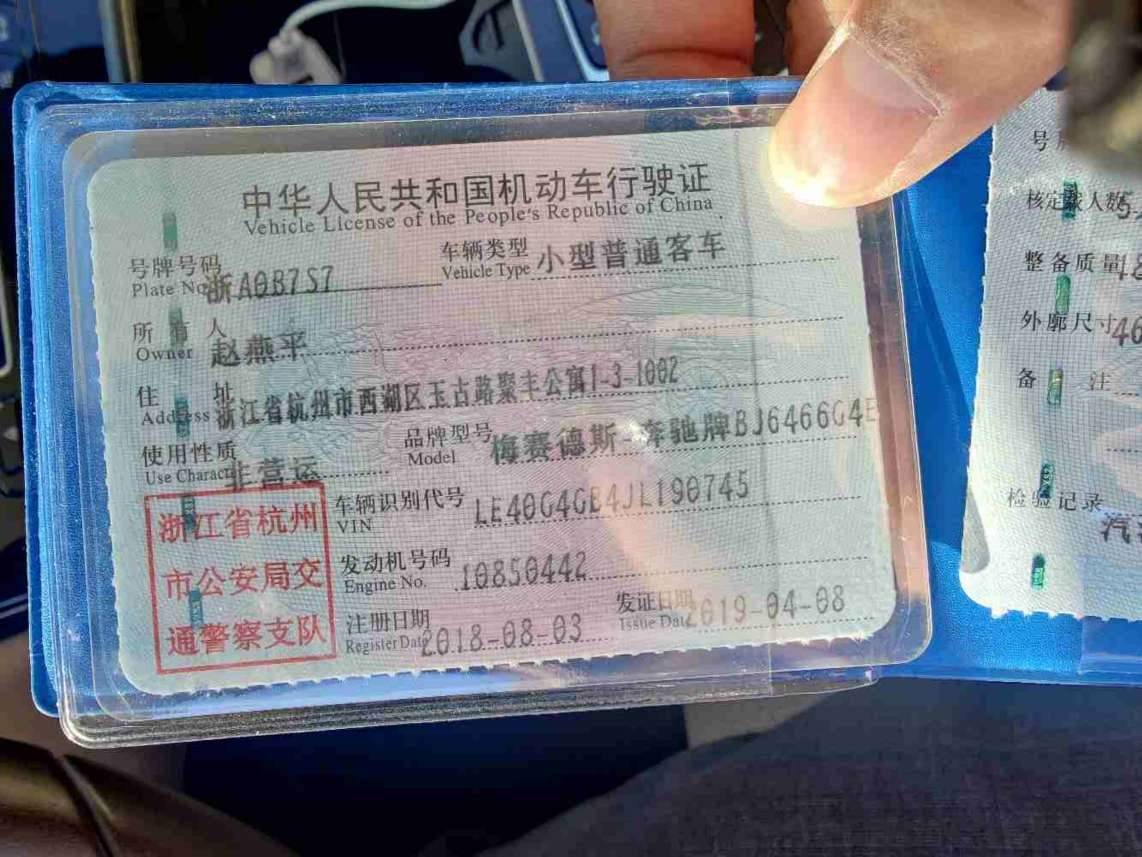 中华人民共和国机动车行驶证
Vehicle License of the People's Republic of China
号牌号码 浙A0B7S7
Plate No.
车辆类型 小型普通客车
Vehicle Type
所有人 赵燕平
Owner
住址 浙江省杭州市西湖区玉古路聚丰公寓1-3-1002
Address
使用性质 非营运
Use Character
品牌型号 梅赛德斯-奔驰牌BJ6466G4E
Model
浙江省杭州
市公安局交
通警察支队
车辆识别代号 LE40G4GB4JL190745
VIN
发动机号码 10850442
Engine No.
注册日期 2018-08-03
Register Date
发证日期 2019-04-08
Issue Date
号
核定载人数 5
整备质量 18
外廓尺寸 46
备注
检验记录
汽